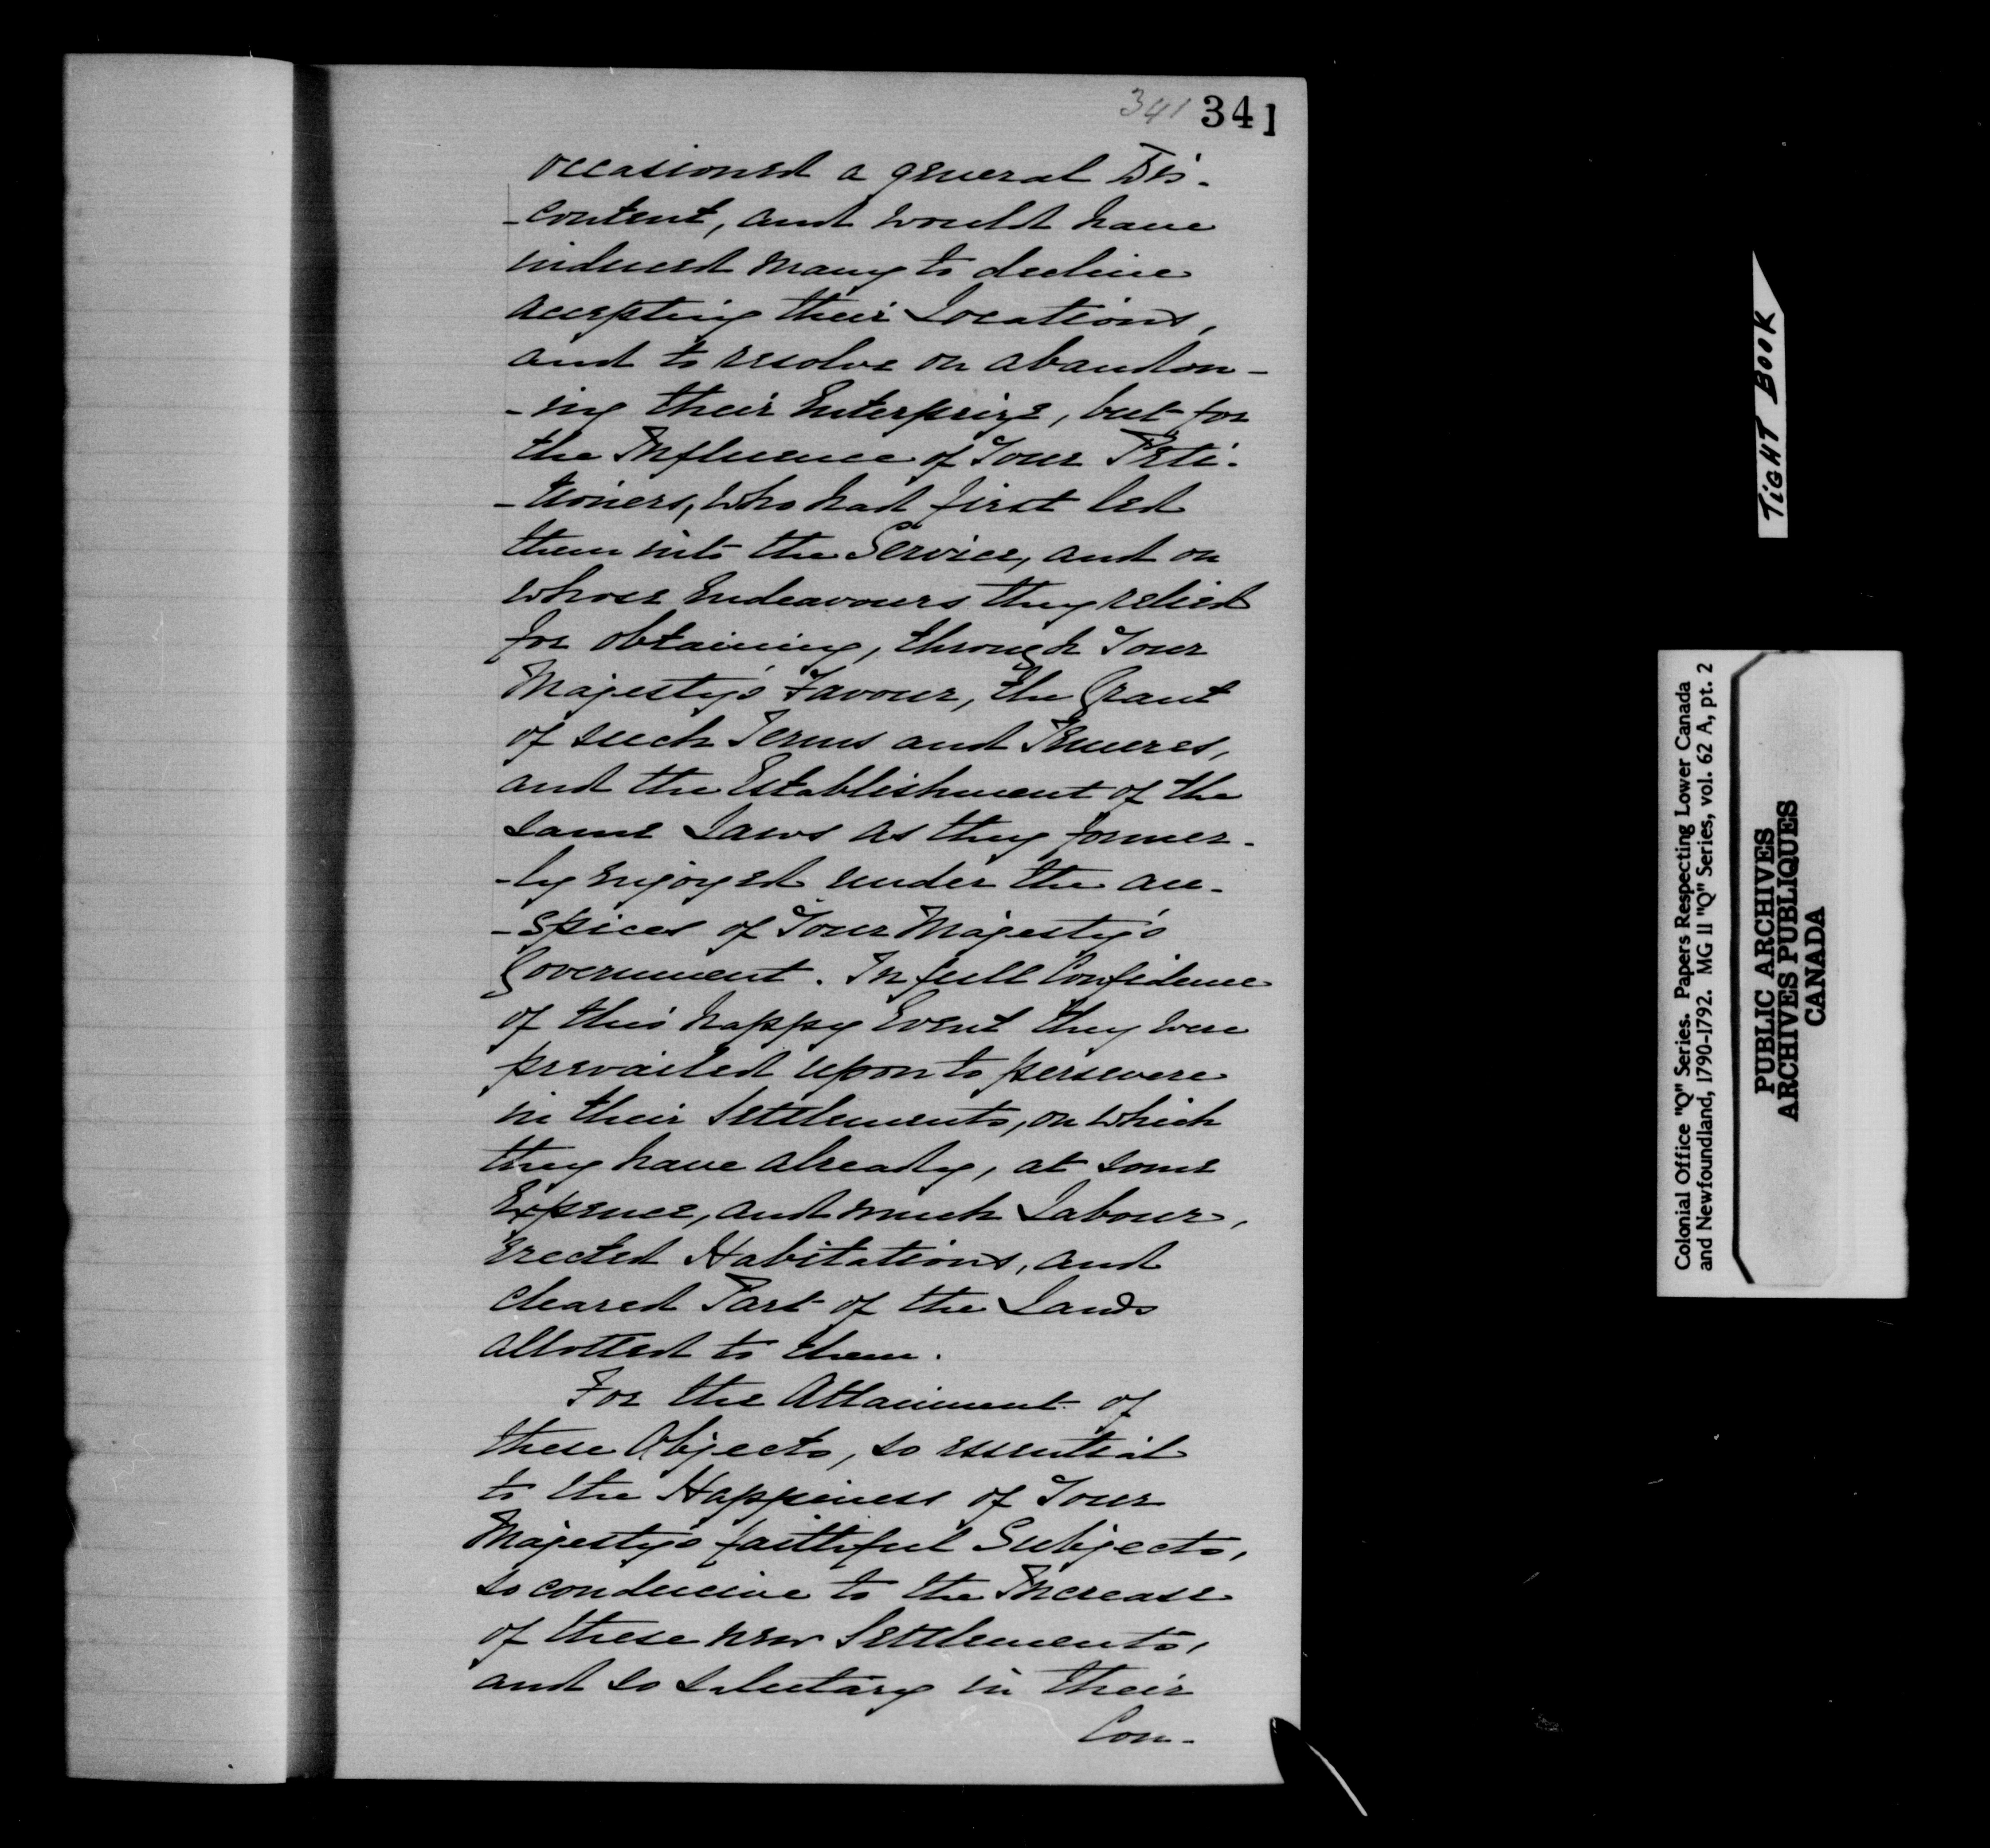 341 341
occasioned a general Dis-
-content, and would have
induced many to decline
accepting their Locations,
and to resolve on abandon-
-ing their Enterprize, but for
the Influence of Your Peti-
-tioners, who had first led
them into the Service, and on
whose Endeavours they relied
for obtaining, through Your
Majesty's Favour, the Grant
of such Terms and Tenures,
and the Establishment of the
same Laws as they former-
-ly enjoyed under the au-
-spices of Your Majesty's
Government. In full Confidence
of this happy Event they were
prevailed upon to persevere
in their Settlements, on which
they have already, at some
Expence, and much Labour,
erected Habitations, and
cleared Part of the Lands
allotted to them.
For the Attainment of
these Objects, so essential
to the Happiness of Your
Majesty's faithful Subjects,
so conducive to the Increase
of these new Settlements,
and so salutary in their
Con-
TIGHT BOOK
Colonial Office "Q" Series. Papers Respecting Lower Canada
and Newfoundland, 1790-1792. MG 11 "Q" Series, vol. 62 A, pt. 2
PUBLIC ARCHIVES
ARCHIVES PUBLIQUES
CANADA